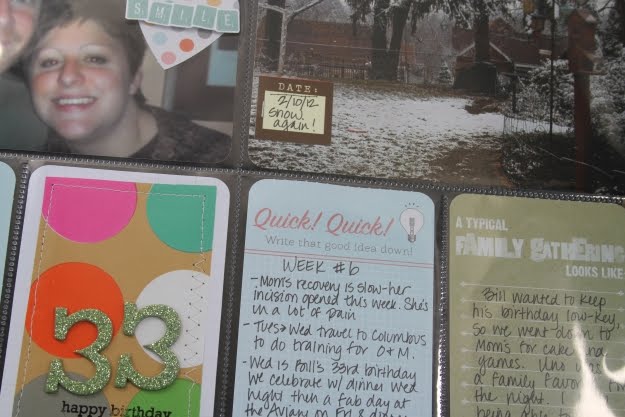 SMILE
DATE:
2/10/12
Snow
again!
33
happy birthday
Quick! Quick!
Write that good idea down!
WEEK #6
- Mom's recovery is slow-her
incision opened this week. She's
in a lot of pain
- Tues→Wed travel to Columbus
to do training for O+M.
- Wed is Bill's 33rd birthday
we celebrate w/ dinner Wed
night then a fab day
at the Aviary on Fri &
A TYPICAL
FAMILY GATHERING
LOOKS LIKE
Bill wanted to keep
his birthday low-key,
so we went down to
Mom's for cake and
games. Uno was
a family favorite
the night. I
being